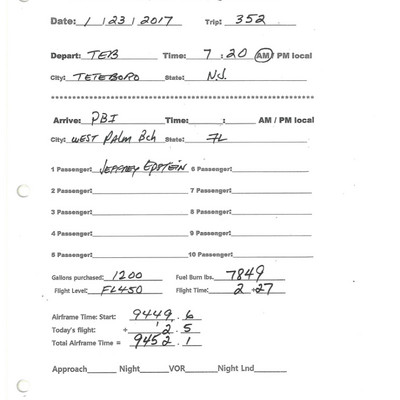 Date: 1 / 23 / 2017 Trip: 352
Depart: TEB Time: 7 : 20 AM / PM local
City: TETEBORO State: NJ
Arrive: PBI Time: : AM / PM local
City: WEST PALM Bch State: FL
1 Passenger: JEFFREY EPSTEIN 6 Passenger:
2 Passenger: 7 Passenger:
3 Passenger: 8 Passenger:
4 Passenger: 9 Passenger:
5 Passenger: 10 Passenger:
Gallons purchased: 1200 Fuel Burn lbs. 7849
Flight Level: FL450 Flight Time: 2 +27
Airframe Time: Start: 9449.6
Today's flight: + 2.5
Total Airframe Time = 9452.1
Approach Night VOR Night Lnd